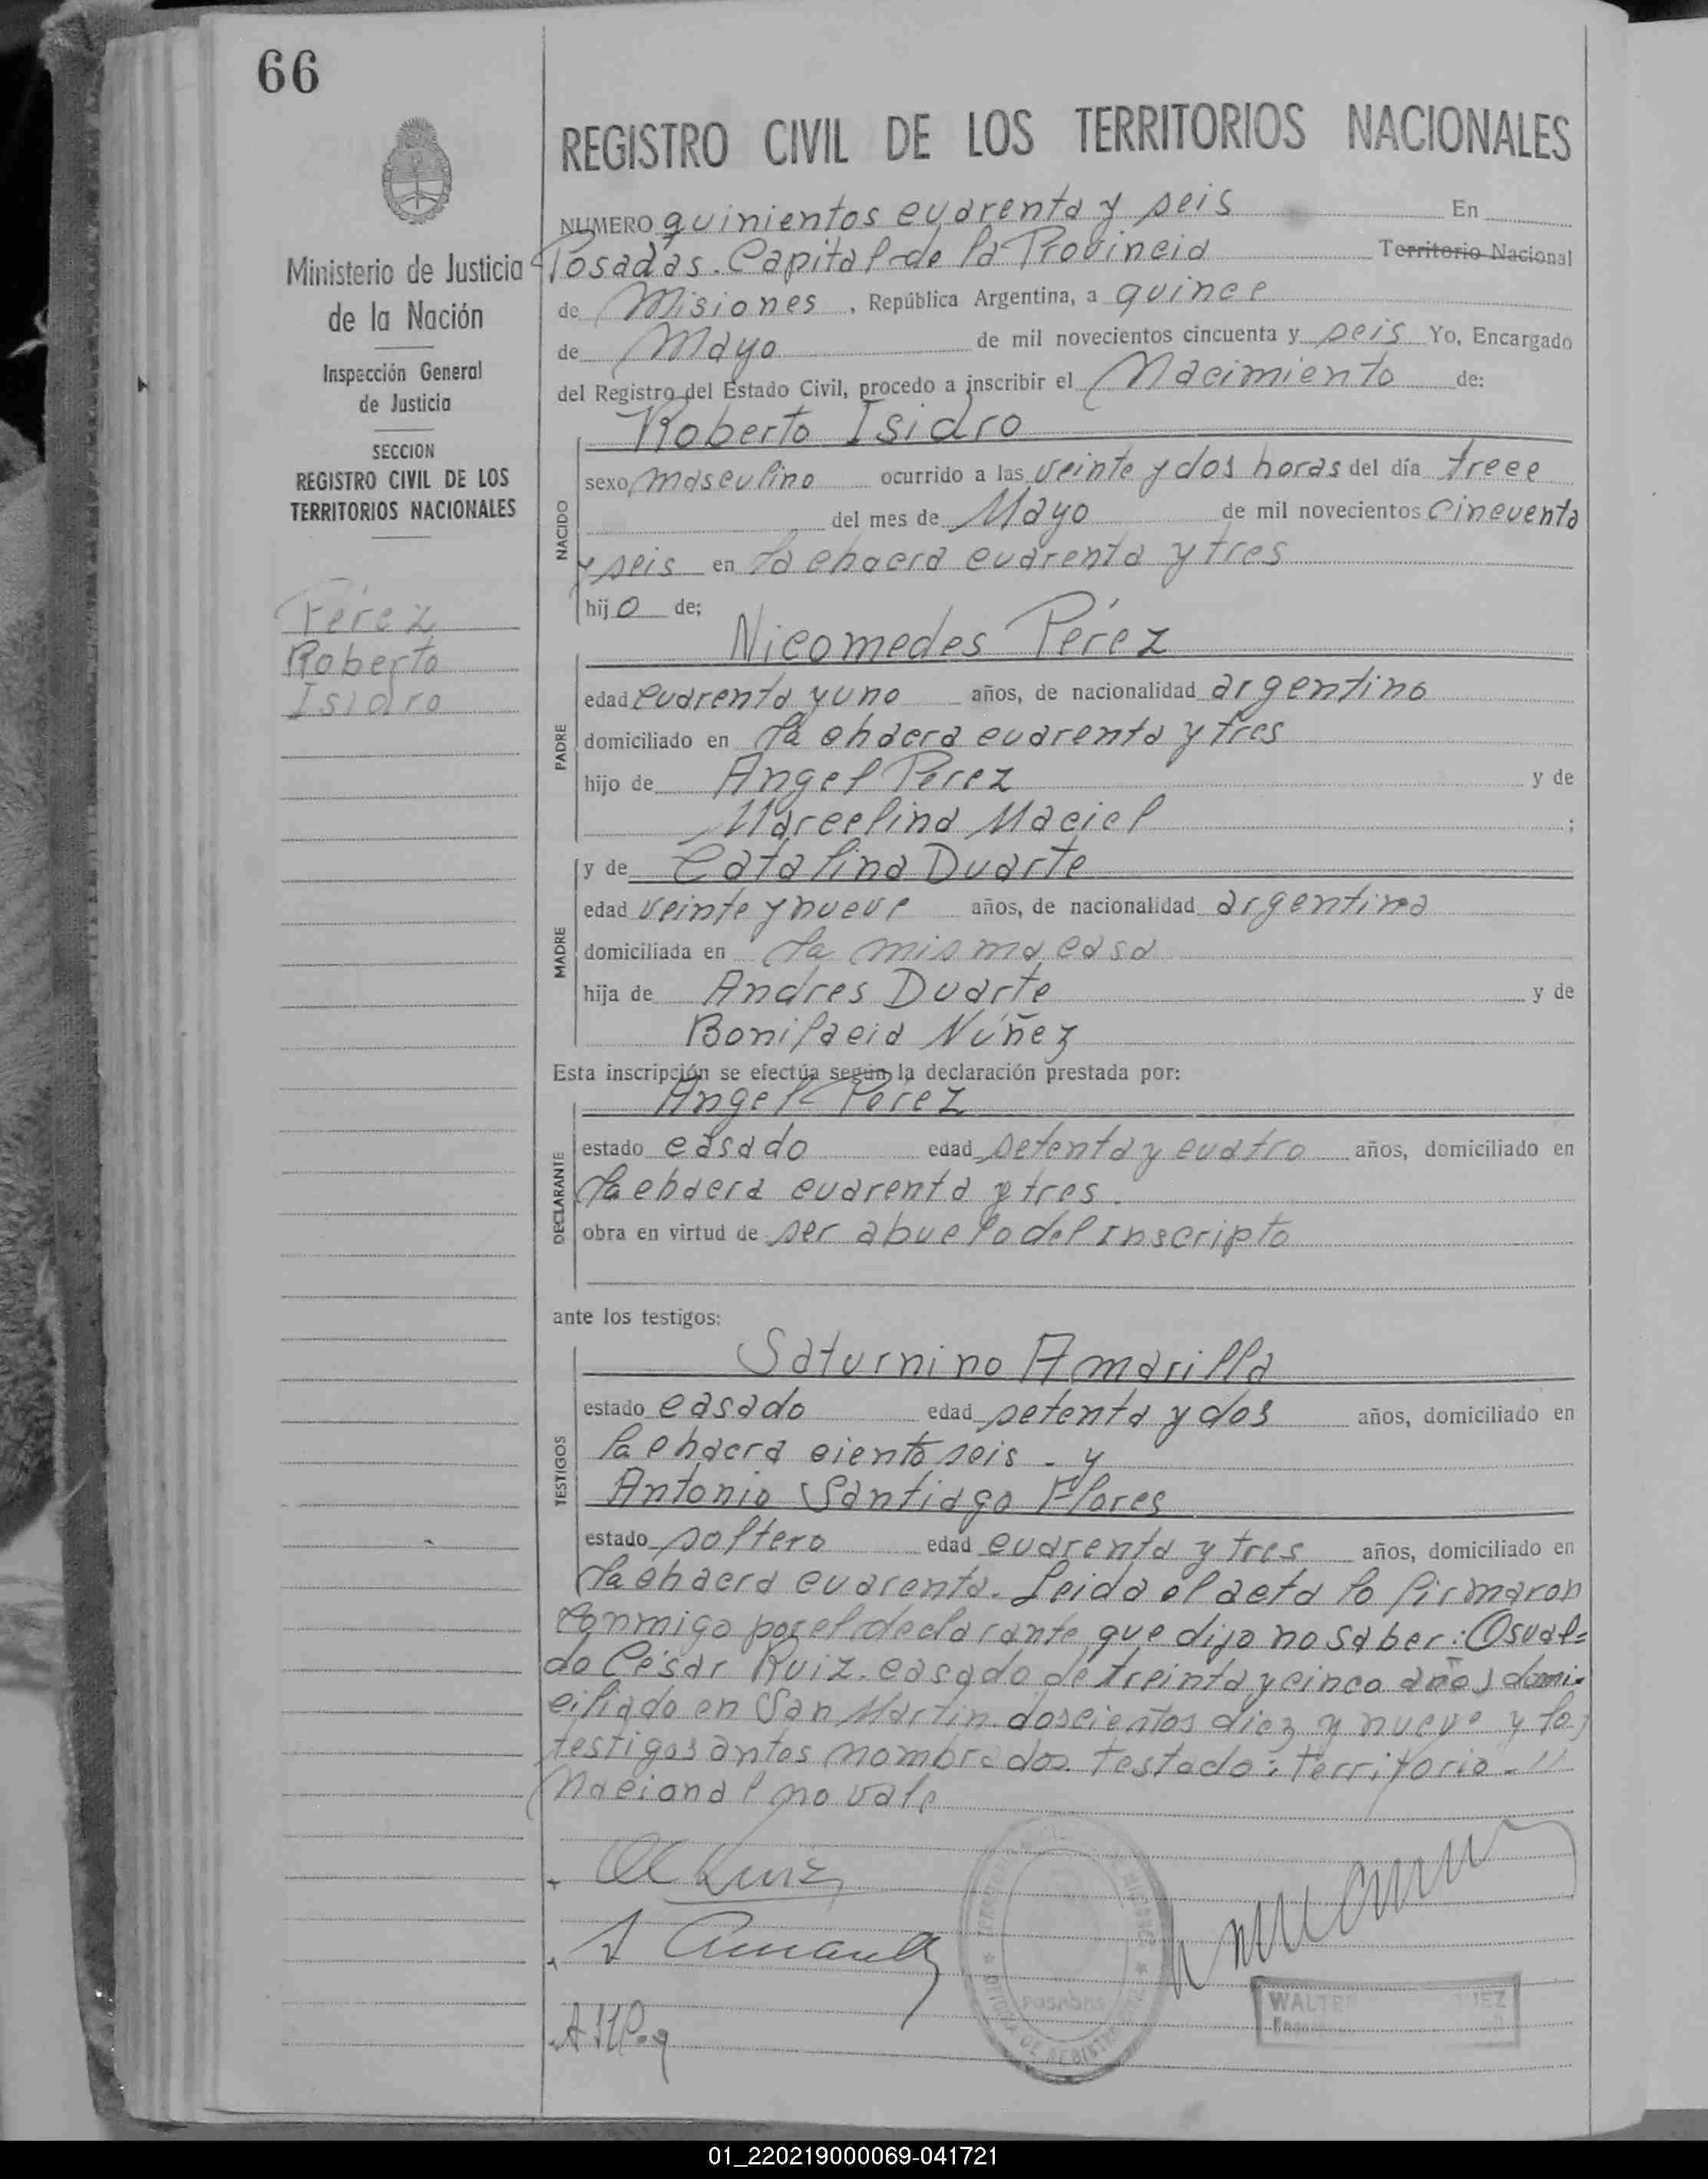 66
REGISTRO CIVIL DE LOS TERRITORIOS NACIONALES
Ministerio de Justicia
de la Nación
Inspección General
de Justicia
SECCION
REGISTRO CIVIL DE LOS
TERRITORIOS NACIONALES
Pérez
Roberto
Isidro
NUMERO quinientos cuarenta y seis En
Posadas. Capital de la Provincia Territorio Nacional
de Misiones, República Argentina, a quince
de Mayo de mil novecientos cincuenta y seis Yo, Encargado
del Registro del Estado Civil, procedo a inscribir el Nacimiento de:
Roberto Isidro
NACIDO
sexo masculino ocurrido a las veinte y dos horas del día trece
del mes de Mayo de mil novecientos cincuenta
y seis en la chacra cuarenta y tres
hijo de;
Nicomedes Pérez
PADRE
edad cuarenta y uno años, de nacionalidad argentino
domiciliado en la chacra cuarenta y tres
hijo de Angel Perez y de
Marcelina Maciel ;
y de Catalina Duarte
MADRE
edad veinte y nueve años, de nacionalidad argentina
domiciliada en la misma casa
hija de Andres Duarte y de
Bonifacia Núñez
Esta inscripción se efectúa según la declaración prestada por:
Angel Perez
DECLARANTE
estado casado edad setenta y cuatro años, domiciliado en
la chacra cuarenta y tres.
obra en virtud de ser abuelo del inscripto
ante los testigos:
Saturnino Amarilla
TESTIGOS
estado casado edad setenta y dos años, domiciliado en
la chacra ciento seis - y
Antonio Santiago Flores
estado soltero edad cuarenta y tres años, domiciliado en
la chacra cuarenta. Leida el acta lo firmaron
conmigo por el declarante que dijo no saber: Osval=
do César Ruiz. casado de treinta y cinco años domi-
ciliado en San Martin doscientos diez y nueve y los
testigos antes nombrados. Testado: Territorio - "
Nacional no vale
Ruiz
POSADAS
WALTER
01_220219000069-041721